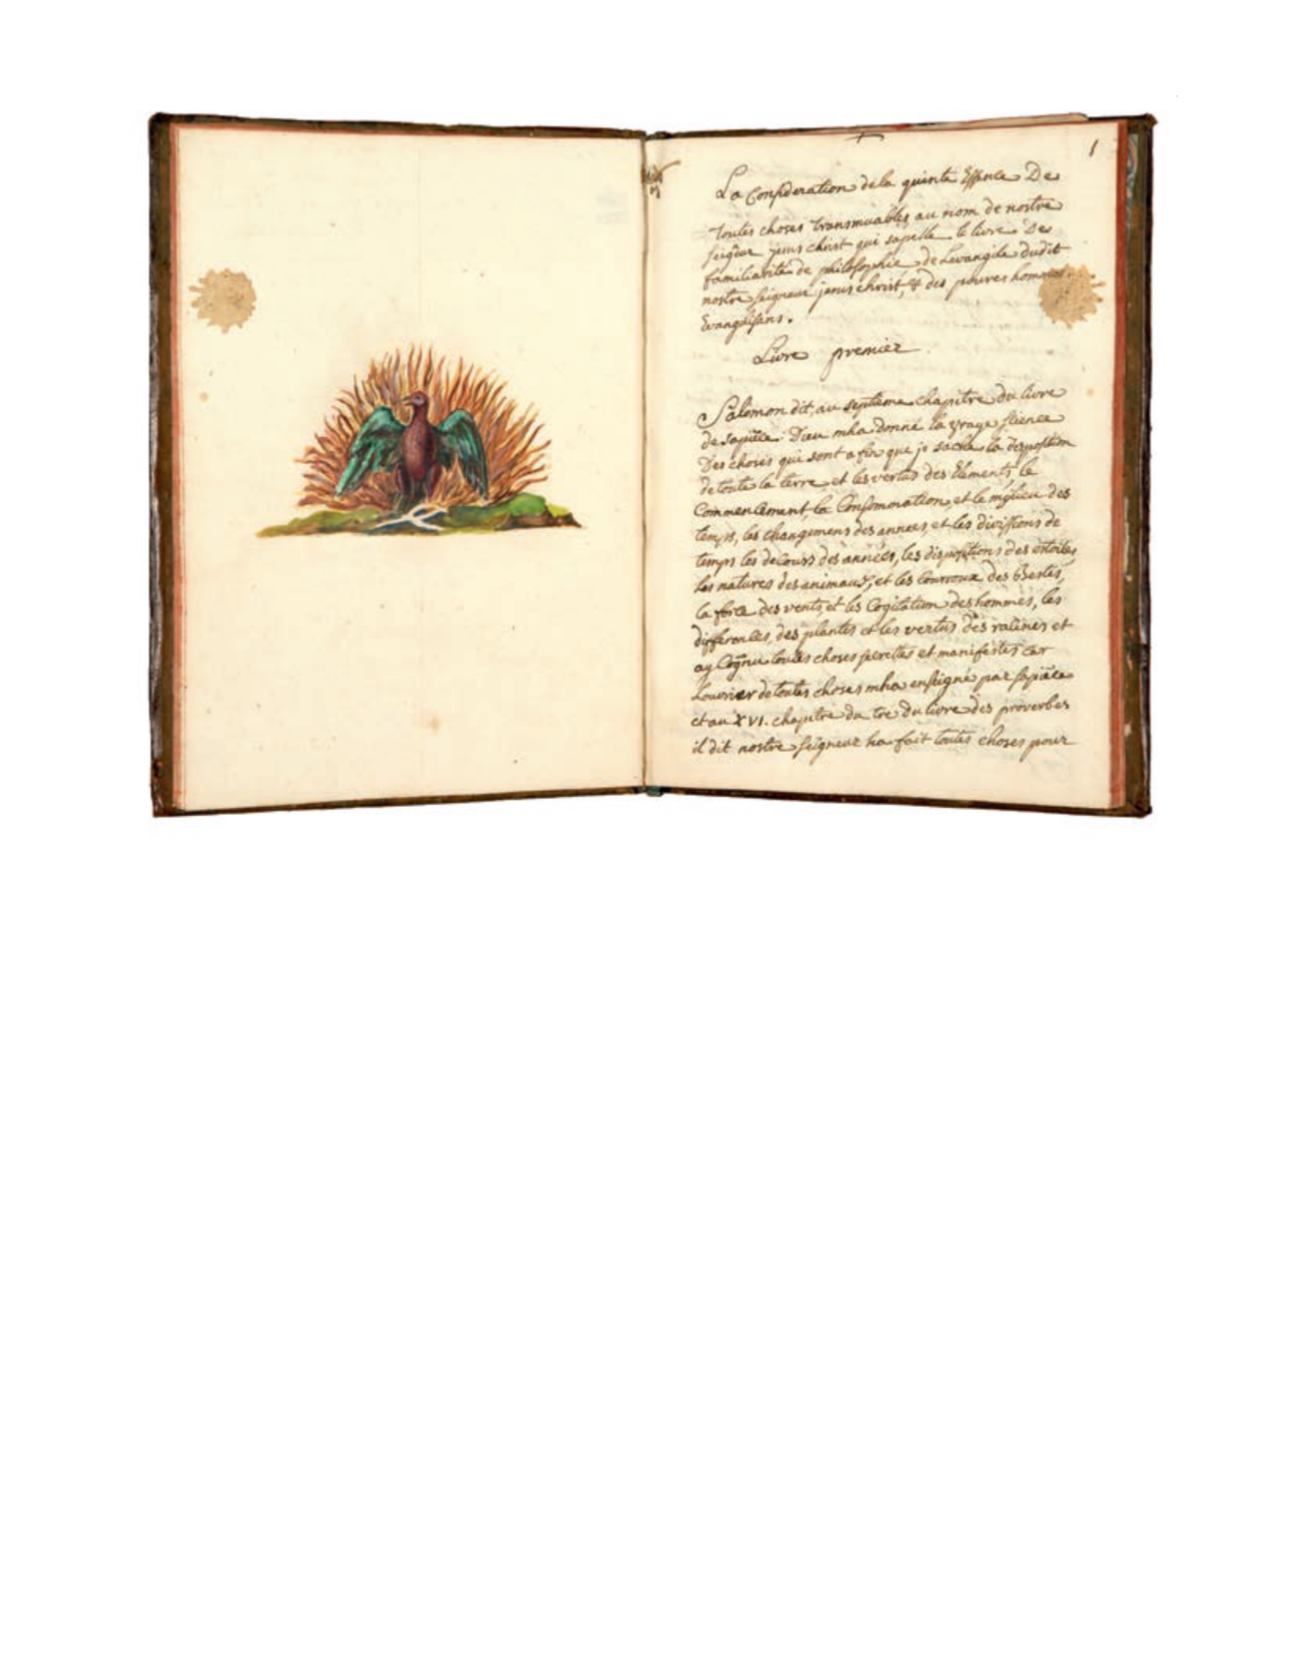 1
La Consideration de la quinte Essence De
toutes choses transmuables au nom de nostre
seigneur jesus christ qui sapelle le livre Des
familiarités de philosophie de Levangile dudit
nostre seigneur jesus christ, & des pouvres hommes
Evangelisans.
Livre premier
Salomon dit, au septieme chapitre du livre
de sapiēce: Dieu mha donné la vraye science
Des choses qui sont a fin que je sache la disposition
de toute la terre et les vertus des Elements le
Commencement, la Consommation, et le mylieu des
temps, les changemens des annees, et les divissions de
temps les decours des années, les dispositions des estoiles,
les natures des animaux, et les Courroux des Bestes,
la force des vents, et les Cogitations des hommes, les
differences, des plantes et les vertus des racines et
ay Cognu toutes choses secrettes et manifestes car
Louvrier de toutes choses mha enseigné par sapiēce
et au XVI. chapitre du livre des proverbes
il dit nostre seigneur ha fait toutes choses pour